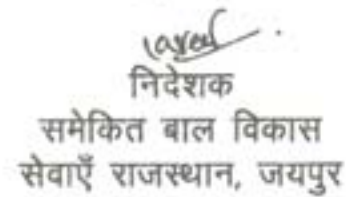 निदेशक
समेकित बाल विकास
सेवाएँ राजस्थान, जयपुर